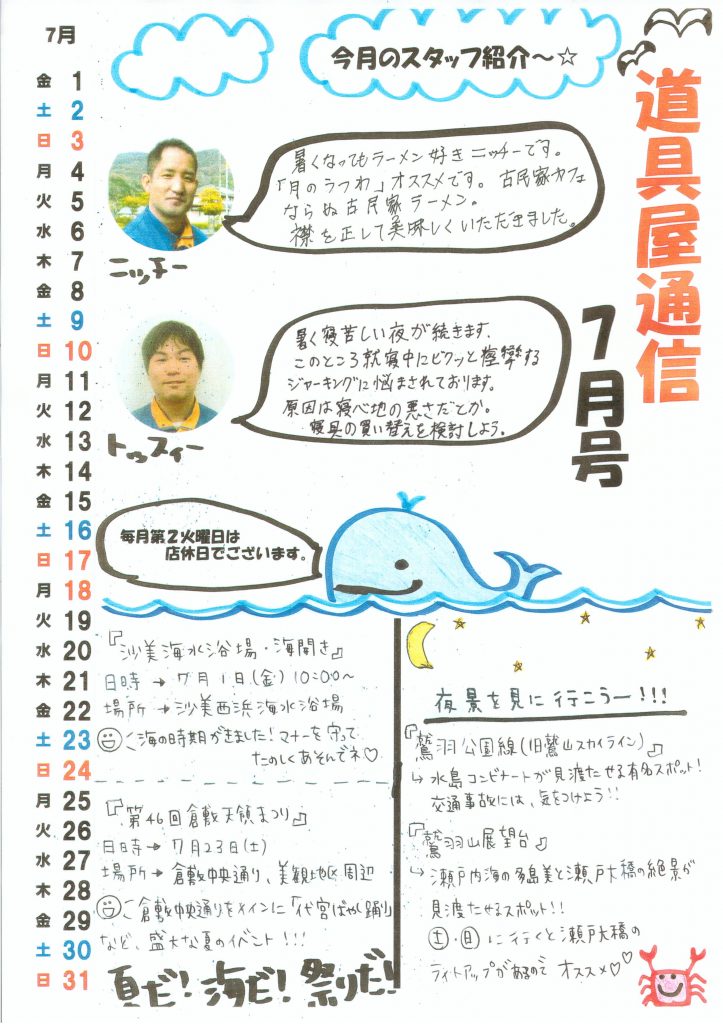 道具屋通信
7月号
7月
金 1
土 2
日 3
月 4
火 5
水 6
木 7
金 8
土 9
日 10
月 11
火 12
水 13
木 14
金 15
土 16
日 17
月 18
火 19
水 20
木 21
金 22
土 23
日 24
月 25
火 26
水 27
木 28
金 29
土 30
日 31
今月のスタッフ紹介～☆
暑くなってもラーメン好きニッチーです。
「月のうつわ」オススメです。古民家カフェ
ならぬ古民家ラーメン。
襟を正して美味しくいただきました。
ニッチー
暑く寝苦しい夜が続きます。
このところ就寝中にビクッと痙攣する
ジャーキングに悩まされております。
原因は寝心地の悪さだとか。
寝具の買い替えを検討しよう。
トッスィー
毎月第２火曜日は
店休日でございます。
『沙美海水浴場・海開き』
日時→7月1日(金)10:00～
場所→沙美西浜海水浴場
海の時期がきました!マナーを守って
たのしくあそんでネ♡
『第46回倉敷天領まつり』
日時→7月23日(土)
場所→倉敷中央通り、美観地区周辺
倉敷中央通りをメインに「代官ばやし踊り」
など、盛大な夏のイベント!!!
夏だ!海だ!祭りだ!
夜景を見に行こうー!!!
『鷲羽公園線(旧鷲山スカイライン)』
↳水島コンビナートが見渡たせる有名スポット!
交通事故には、気をつけよう!!
『鷲羽山展望台』
↳瀬戸内海の多島美と瀬戸大橋の絶景が
見渡たせるスポット!!
土・日に行くと瀬戸大橋の
ライトアップがあるのでオススメ♡♡